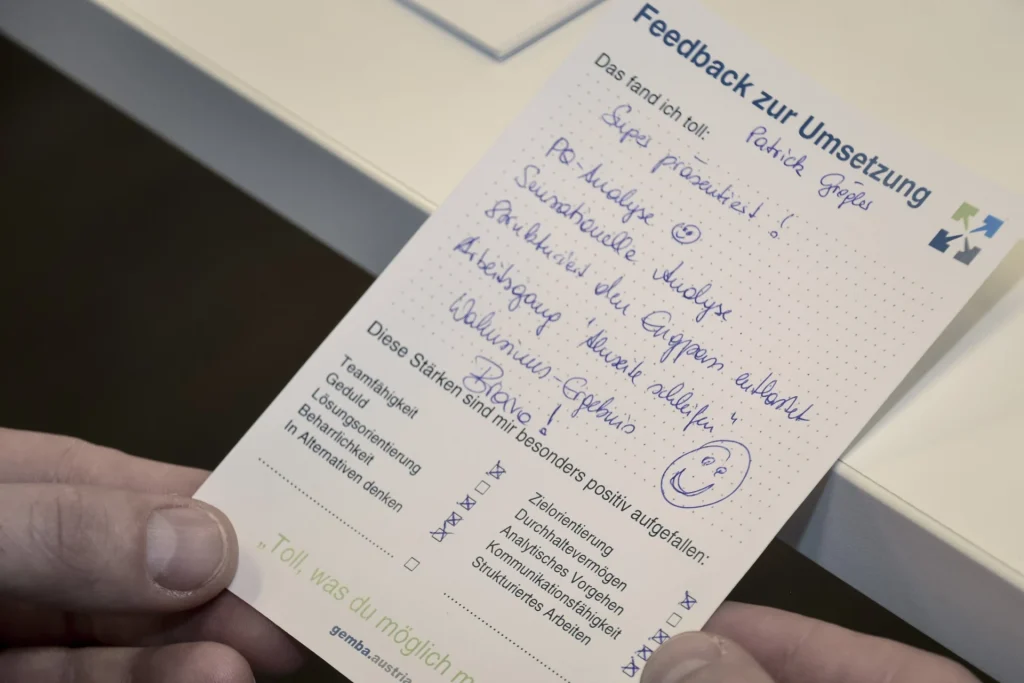 Feedback zur Umsetzung
Das fand ich toll: Patrick
Super präsentiert!
PQ-Analyse
Sensationelle Analyse
Strukturiert den Engpass entlastet
Arbeitsgang "schleifen"
Wahnsinns-Ergebnis
Bravo!
Diese Stärken sind mir besonders positiv aufgefallen:
Teamfähigkeit
Geduld
Lösungsorientierung
Beharrlichkeit
In Alternativen denken
Zielorientierung
Durchhaltevermögen
Analytisches Vorgehen
Kommunikationsfähigkeit
Strukturiertes Arbeiten
„Toll, was du möglich m
gemba.austria